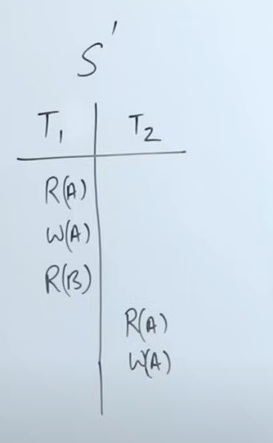 S'
T₁ T₂
R(A)
W(A)
R(B)
R(A)
W(A)